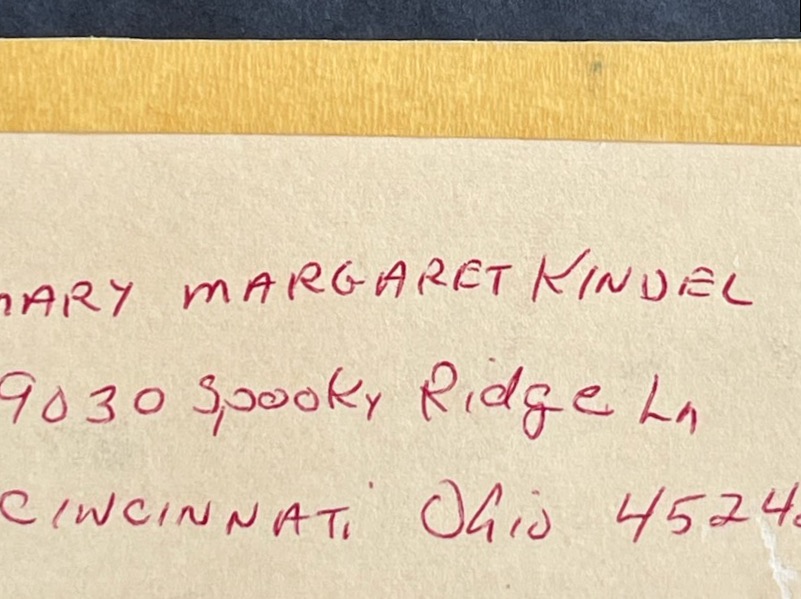 MARY MARGARET KINDEL
9030 Spooky Ridge Ln
CINCINNATi Ohio 4524